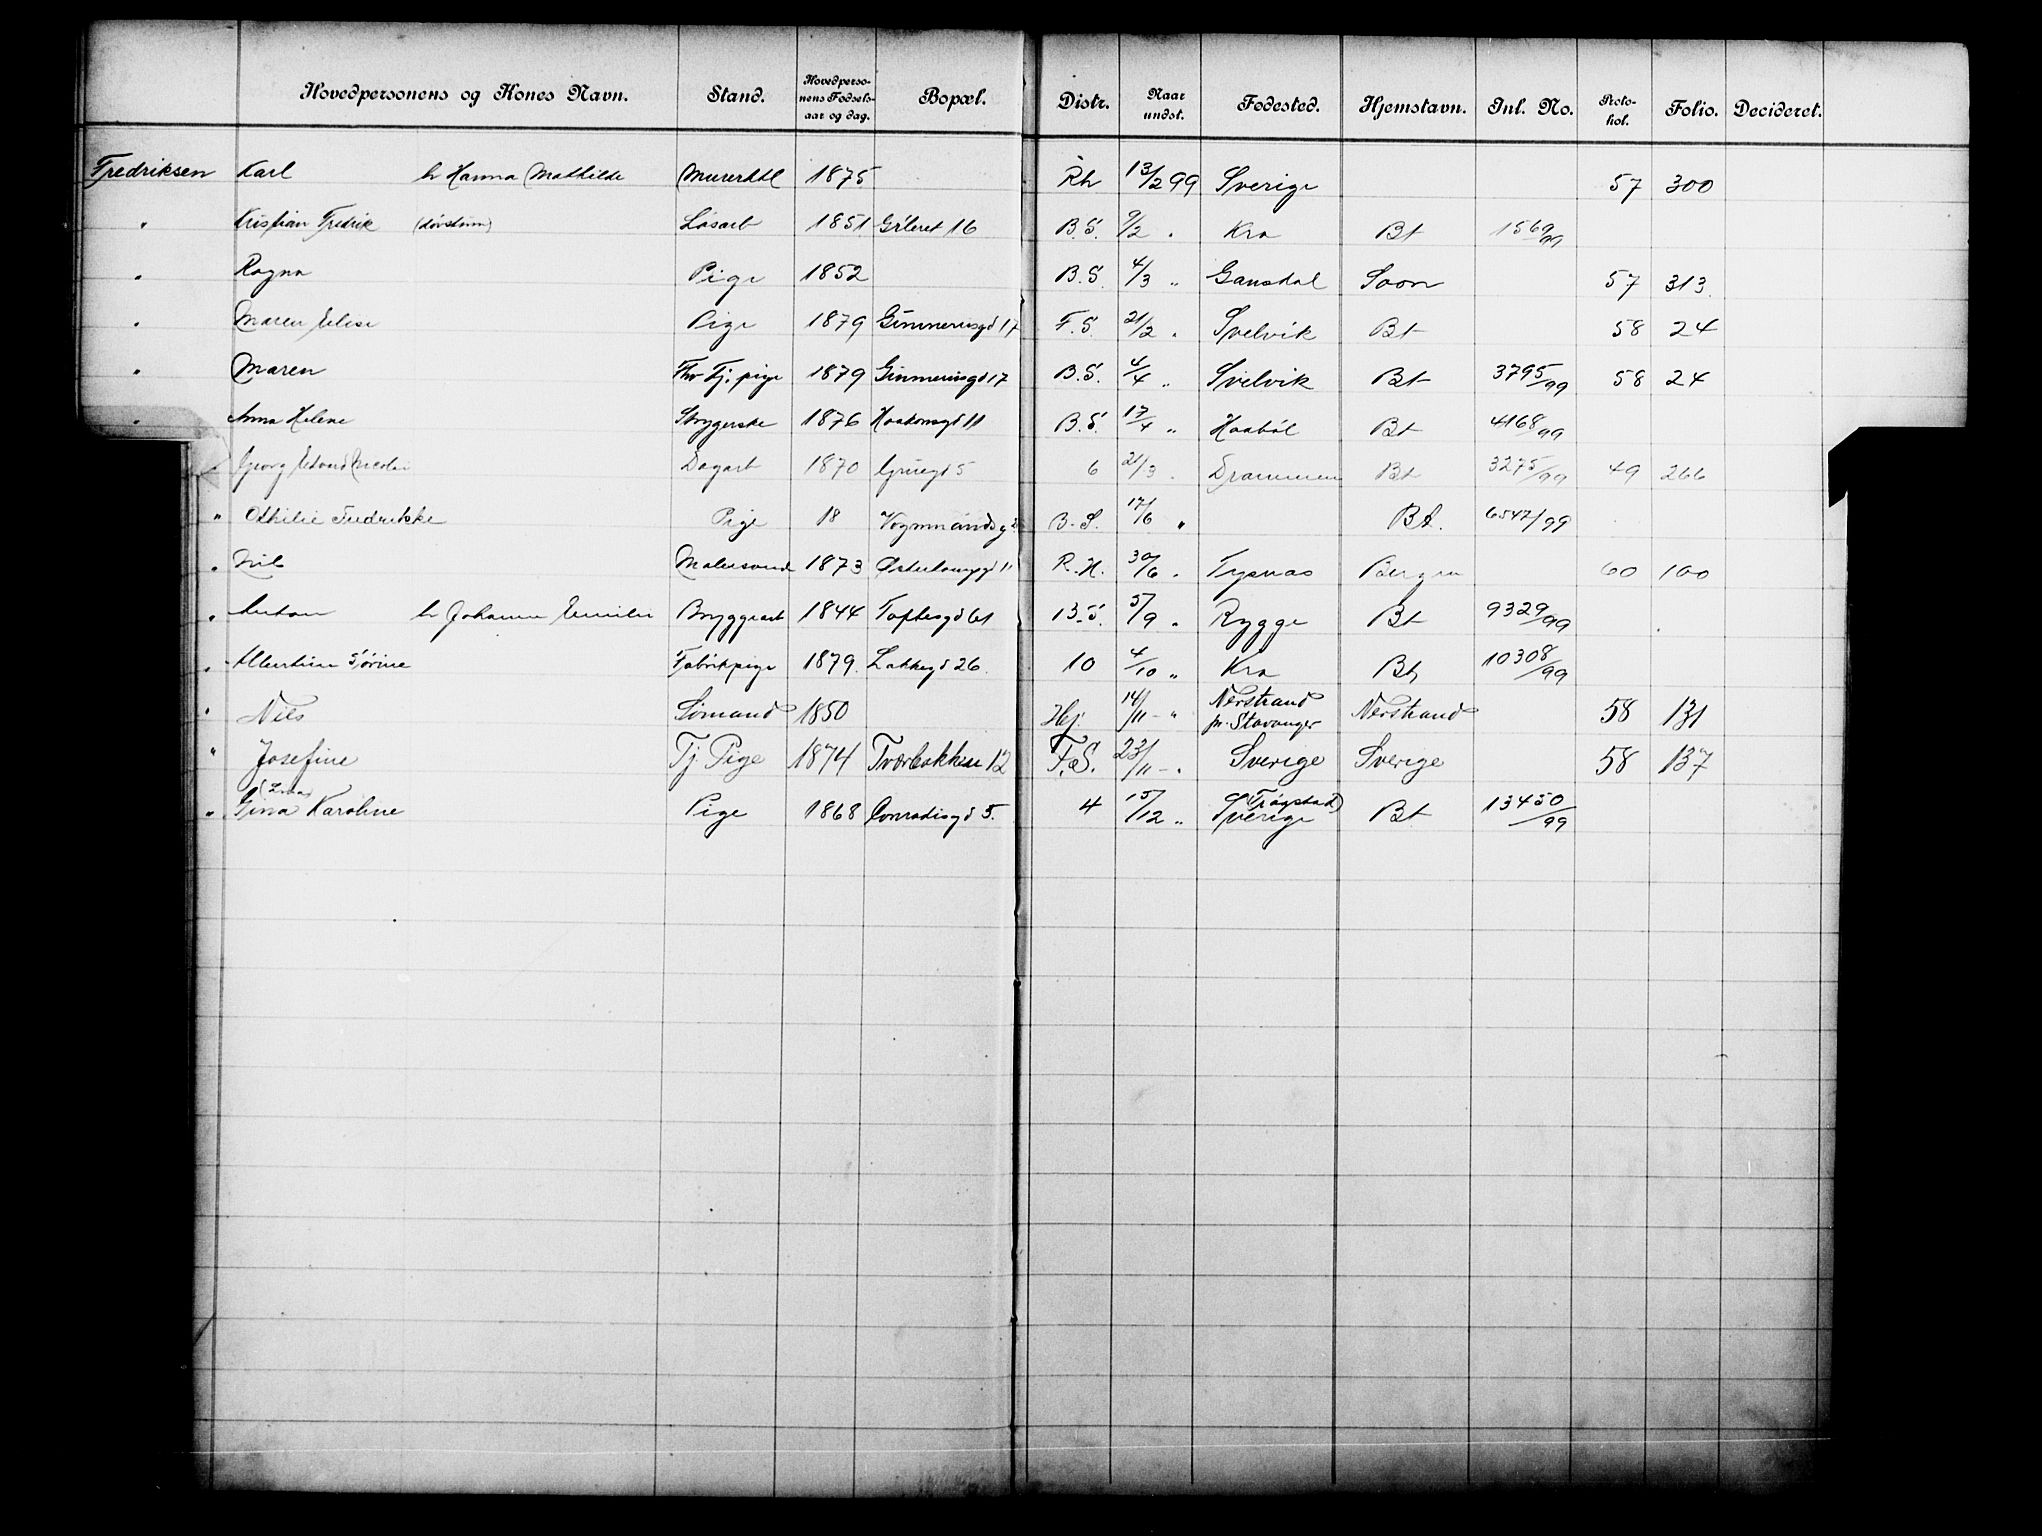 Hovedpersonens og Kones Navn. Stand. Hovedpersonens Fødselsaar og dag. Bopæl. Distr. Naar undst. Fødested. Hjemstavn. Inl. No. Protokol. Folio. Decideret.
Fredriksen Karl h Hanna Mathilde 1875 Rh 13/2 99 Sverige 57 300
" Kristian Fredrik Løsarb 1851 Grleret 16 B.S. 9/2 " Kra Bt 1569/99
" Ragna Pige 1852 B.S. 4/3 " Gansdal Soon 57 313
" Maren Elise Pige 1879 17 F.S. 21/2 " Svelvik Bt 58 24
" Maren Thv Tj. pige 1879 17 B.S. 4/4 " Svelvik Bt 3795/99 58 24
" Anna Helene Strygerske 1876 Haakonsgd 11 B.S. 17/4 " Haabøl Bt 4168/99
" Georg Edvard Nicolai Dagarb 1870 Gruegd 5 6 21/3 " Drammen Bt 3275/99 49 266
" Othilie Fredrikke Pige 18 B.S. 17/6 " Bt. 6547/99
" Nils Malersvend 1873 R.H. 30/6 " Tysnæs Bergen 60 100
" Anton h Johanne Emilie Bryggearb 1844 Toftesgd 61 B.S. 5/9 " Rygge Bt 9329/99
" Albertine Tjørine Fabrikpige 1879. Lakkegd 26 10 4/10 " Kra Bt 10308/99
" Nils Sømand 1850 Hj. 14/11 - " Nerstrand pr. Stavanger Nerstrand 58 131
" Josefine Tj. Pige 1874 Tværbakken 12 F.S. 23/11 - " Sverige Sverige 58 137
" Gina Karoline Pige 1868 Conradisgd 5. 4 15/12 " (Trøgstad) Sverige Bt 13450/99